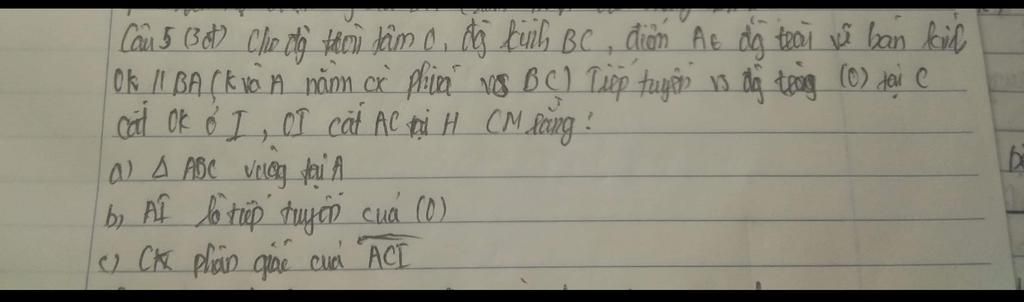 Câu 5 (3đ) Cho đg tròn tâm O, đg kính BC, điểm A ∈ đg tròn vẽ bán kính
OK // BA (K và A nằm cx phía vs BC) Tiếp tuyến vs đg tròng (O) tại C
cắt OK ở I, OI cắt AC tại H CM rằng:
a) Δ ABC vuông tại A
b, AI là tiếp tuyến cuả (O)
c) CK phân giác cuả ACI